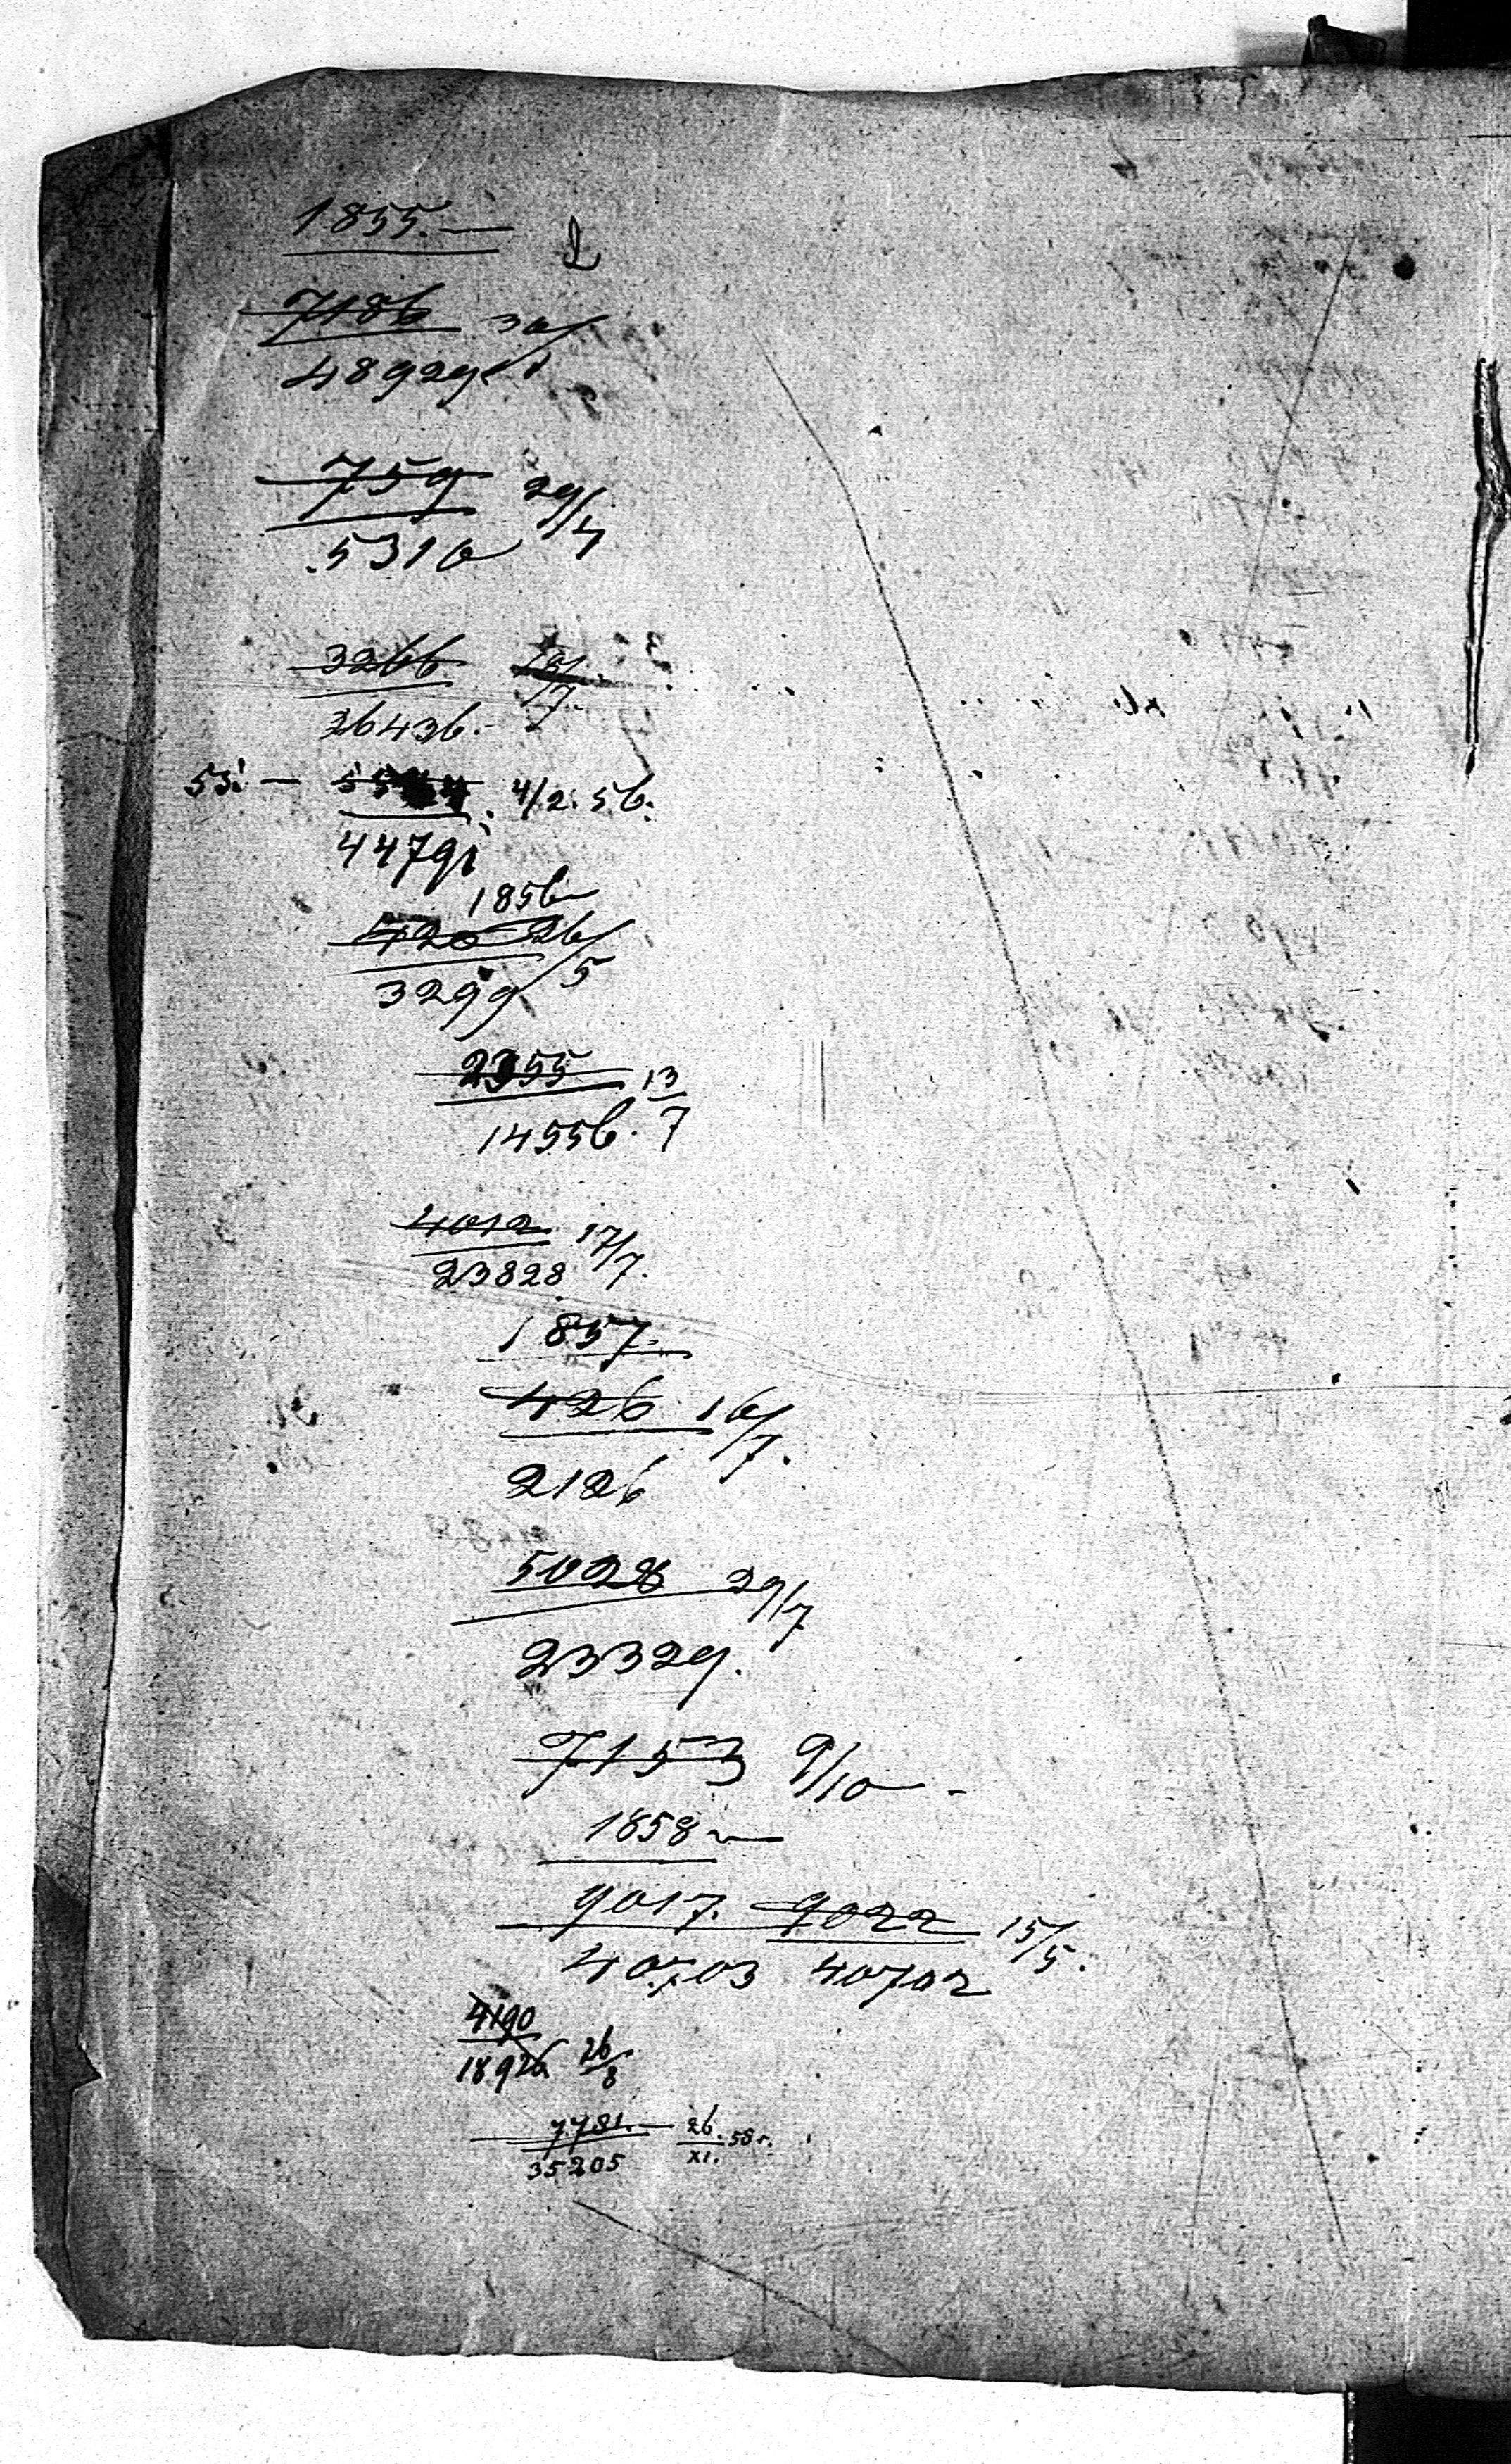 1855.—
7186 30/1
48929
759 29/4
5316
3266 /7.
36436.-
55. — 4/2. 56.
4479i
1856
420 26/5
3299
2355 13/7
14556.
4012 17/7.
23828
1857.
426 16/7.
2126
5028 29/7
23329.
7153 9/10 -
1858
9017. 9022 15/5.
40703 40702
4190
18926 26/8
7781. 26/XI. 58 г.
35205